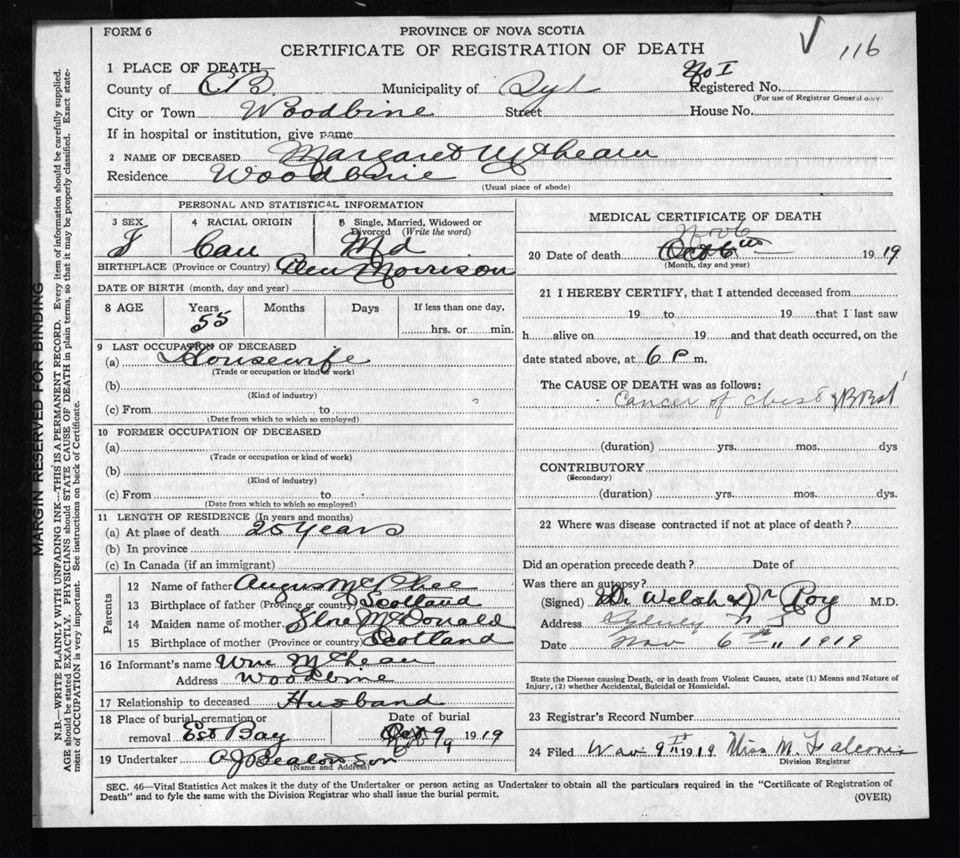 FORM 6
PROVINCE OF NOVA SCOTIA
CERTIFICATE OF REGISTRATION OF DEATH
116
1 PLACE OF DEATH
No I
County of C B. Municipality of Syd Registered No.
(For use of Registrar General only)
City or Town Woodbine Street House No.
If in hospital or institution, give name
2 NAME OF DECEASED Margaret
Residence Woodbine
(Usual place of abode)
PERSONAL AND STATISTICAL INFORMATION
3 SEX 4 RACIAL ORIGIN 5 Single, Married, Widowed or
Divorced (Write the word)
F Can Md
BIRTHPLACE (Province or Country) Ben Morrison
DATE OF BIRTH (month, day and year)
8 AGE Years Months Days If less than one day,
55
hrs. or min.
9 LAST OCCUPATION OF DECEASED
(a) Housewife
(Trade or occupation or kind of work)
(b)
(Kind of industry)
(c) From to
(Date from which to which so employed)
10 FORMER OCCUPATION OF DECEASED
(a)
(Trade or occupation or kind of work)
(b)
(Kind of industry)
(c) From to
(Date from which to which so employed)
11 LENGTH OF RESIDENCE (In years and months)
(a) At place of death 25 Years
(b) In province
(c) In Canada (if an immigrant)
Parents
12 Name of father Angus McPhee
13 Birthplace of father (Province or country) Scotland
14 Maiden name of mother McDonald
15 Birthplace of mother (Province or country) Scotland
16 Informant's name Wm
Address Woodbine
17 Relationship to deceased Husband
18 Place of burial, cremation or Date of burial
removal Est Bay Nov 9 1919
19 Undertaker A J Beatonson
(Name and Address)
MEDICAL CERTIFICATE OF DEATH
Nov 6
20 Date of death Oct 6th 1919
(Month, day and year)
21 I HEREBY CERTIFY, that I attended deceased from
19 to 19 that I last saw
h alive on 19 and that death occurred, on the
date stated above, at 6 P m.
The CAUSE OF DEATH was as follows:
Cancer of chest &
(duration) yrs. mos. dys
CONTRIBUTORY
(Secondary)
(duration) yrs. mos. dys.
22 Where was disease contracted if not at place of death?
Did an operation precede death? Date of
Was there an autopsy?
(Signed) Dr Welsh & Dr Roy M.D.
Address Sydney N S
Date Nov 6th " 1919
State the Disease causing Death, or in death from Violent Causes, state (1) Means and Nature of
Injury, (2) whether Accidental, Suicidal or Homicidal.
23 Registrar's Record Number
24 Filed Nov 9th " 1919 Miss M. Falconer
Division Registrar
SEC. 46—Vital Statistics Act makes it the duty of the Undertaker or person acting as Undertaker to obtain all the particulars required in the "Certificate of Registration of
Death" and to fyle the same with the Division Registrar who shall issue the burial permit.
(OVER)
MARGIN RESERVED FOR BINDING
N.B.—WRITE PLAINLY WITH UNFADING INK—THIS IS A PERMANENT RECORD. Every item of information should be carefully supplied.
AGE should be stated EXACTLY. PHYSICIANS should STATE CAUSE OF DEATH in plain terms, so that it may be properly classified. Exact state-
ment of OCCUPATION is very important. See instructions on back of Certificate.